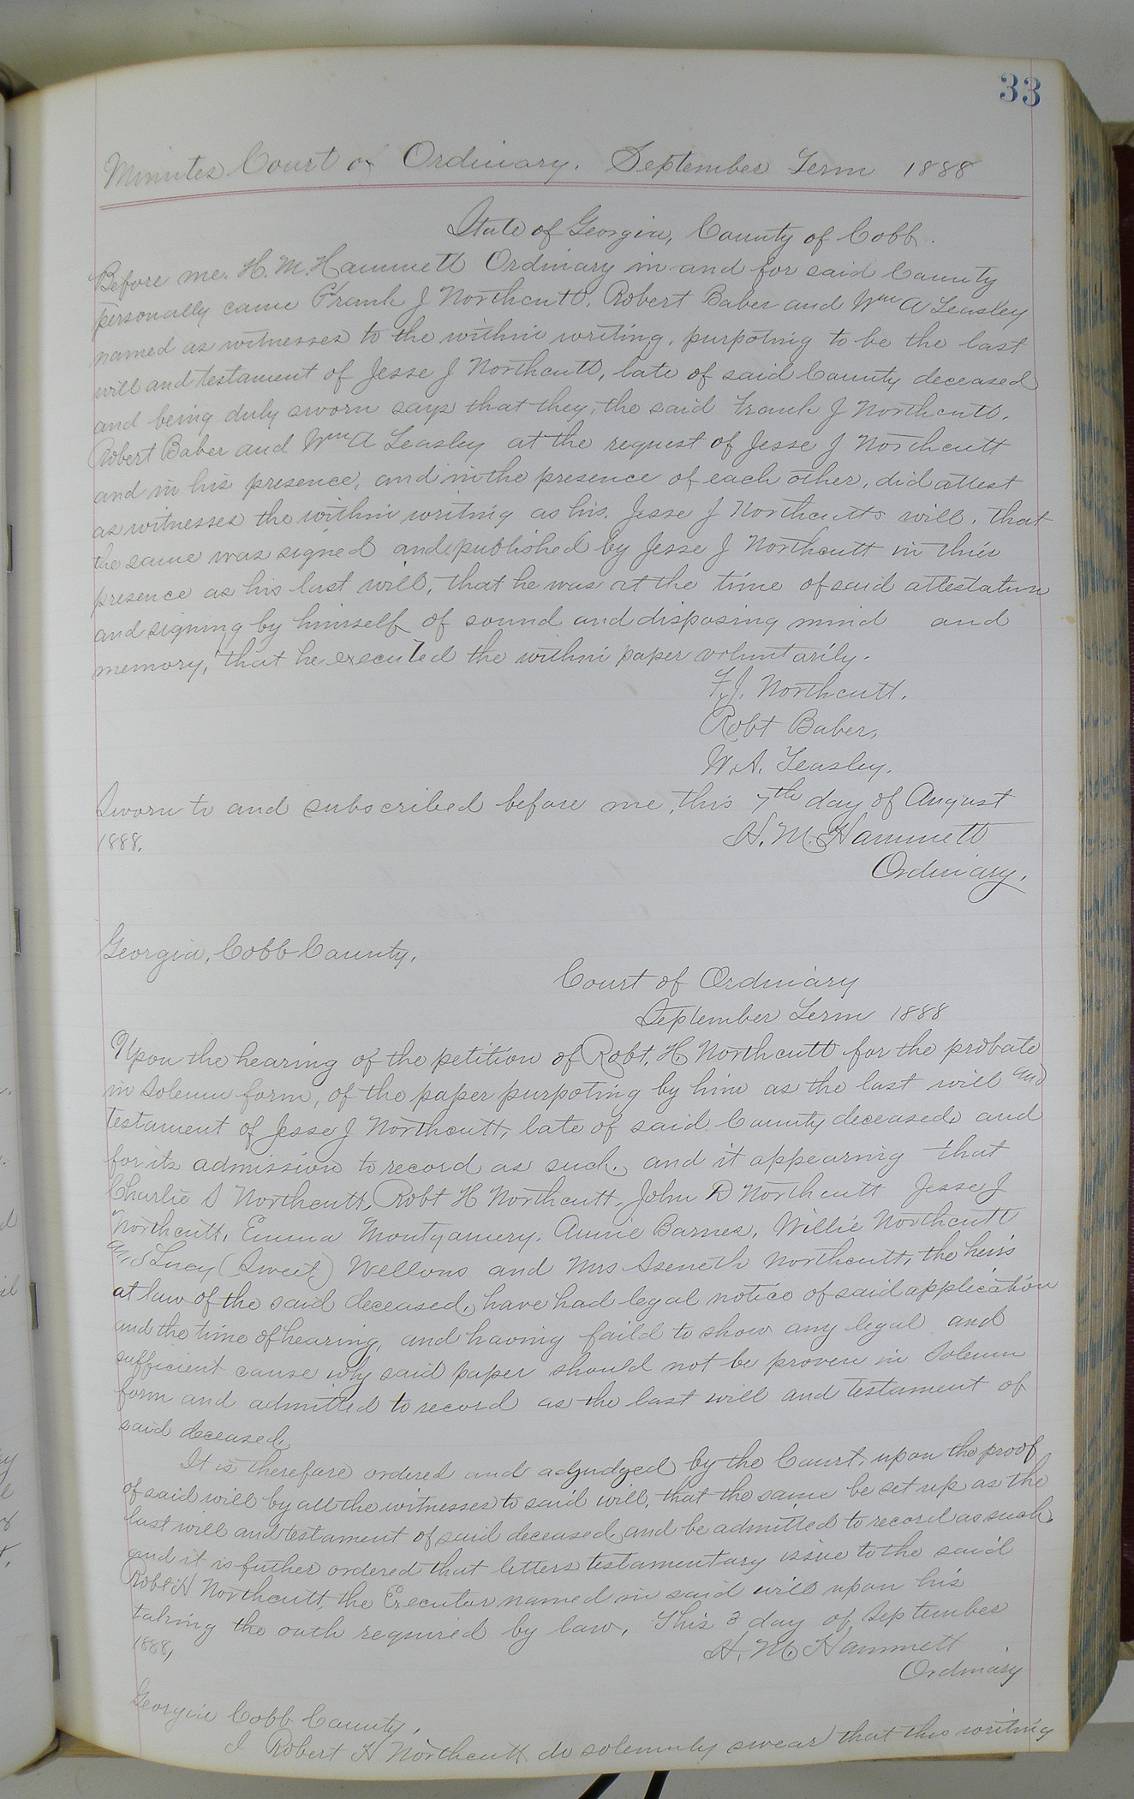 33
Minutes Court of Ordinary. September Term 1888
State of Georgia, County of Cobb.
Before me. H. M. Hammett Ordinary in and for said County
personally came Frank J Northcutt. Robert Baber and Wm A Teasley
named as witnesses to the within writing, purpoting to be the last
will and testament of Jesse J Northcutt, late of said County deceased
and being duly sworn says that they, the said Frank J Northcutt.
Robert Baber and Wm A Teasley at the request of Jesse J Northcutt
and in his presence, and in the presence of each other, did attest
as witnesses the within writing as his. Jesse J Northcutts will. that
the same was signed and published by Jesse J Northcutt in their
presence as his last will, that he was at the time of said attestation
and signing by himself of sound and disposing mind and
memory, that he executed the within paper voluntarily.
F. J. Northcutt.
Robt Baber,
W. A. Teasley.
Sworn to and subscribed before me, this 7th day of August
1888.
H. M. Hammett
Ordinary.
Georgia, Cobb County.
Court of Ordinary
September Term 1888
Upon the hearing of the petition of Robt. H Northcutt for the probate
in Solemn form, of the paper purpoting by him as the last will and
testament of Jesse J Northcutt, late of said County deceased and
for its admission to record as such, and it appearing that
Charlie S Northcutt, Robt H Northcutt, John D Northcutt Jesse J
Northcutt, Emma Montgamery. Annie Barnes, Willie Northcutt
Lucy (Sweet) Wellons and Mrs Aseneth Northcutt, the heirs
at law of the said deceased, have had legal notice of said application
and the time of hearing, and having faild to show any legal and
sufficient cause why said paper should not be proven in Solemn
form and admitted to record as the last will and testament of
said deceased,
It is therefore ordered and adjudged by the Court, upon the proof
of said will by all the witnesses to said will, that the same be set up as the
last will and testament of said deceased, and be admitted to record as such,
and it is futher ordered that letters testamentary issue to the said
Robt H Northcutt, the Executor named in said will upon his
taking the oath required by law. This 3 day of September
1888,
H. M. Hammett
Ordinary
Georgia Cobb County,
I Robert H Northcutt do solemnly swear that this writing